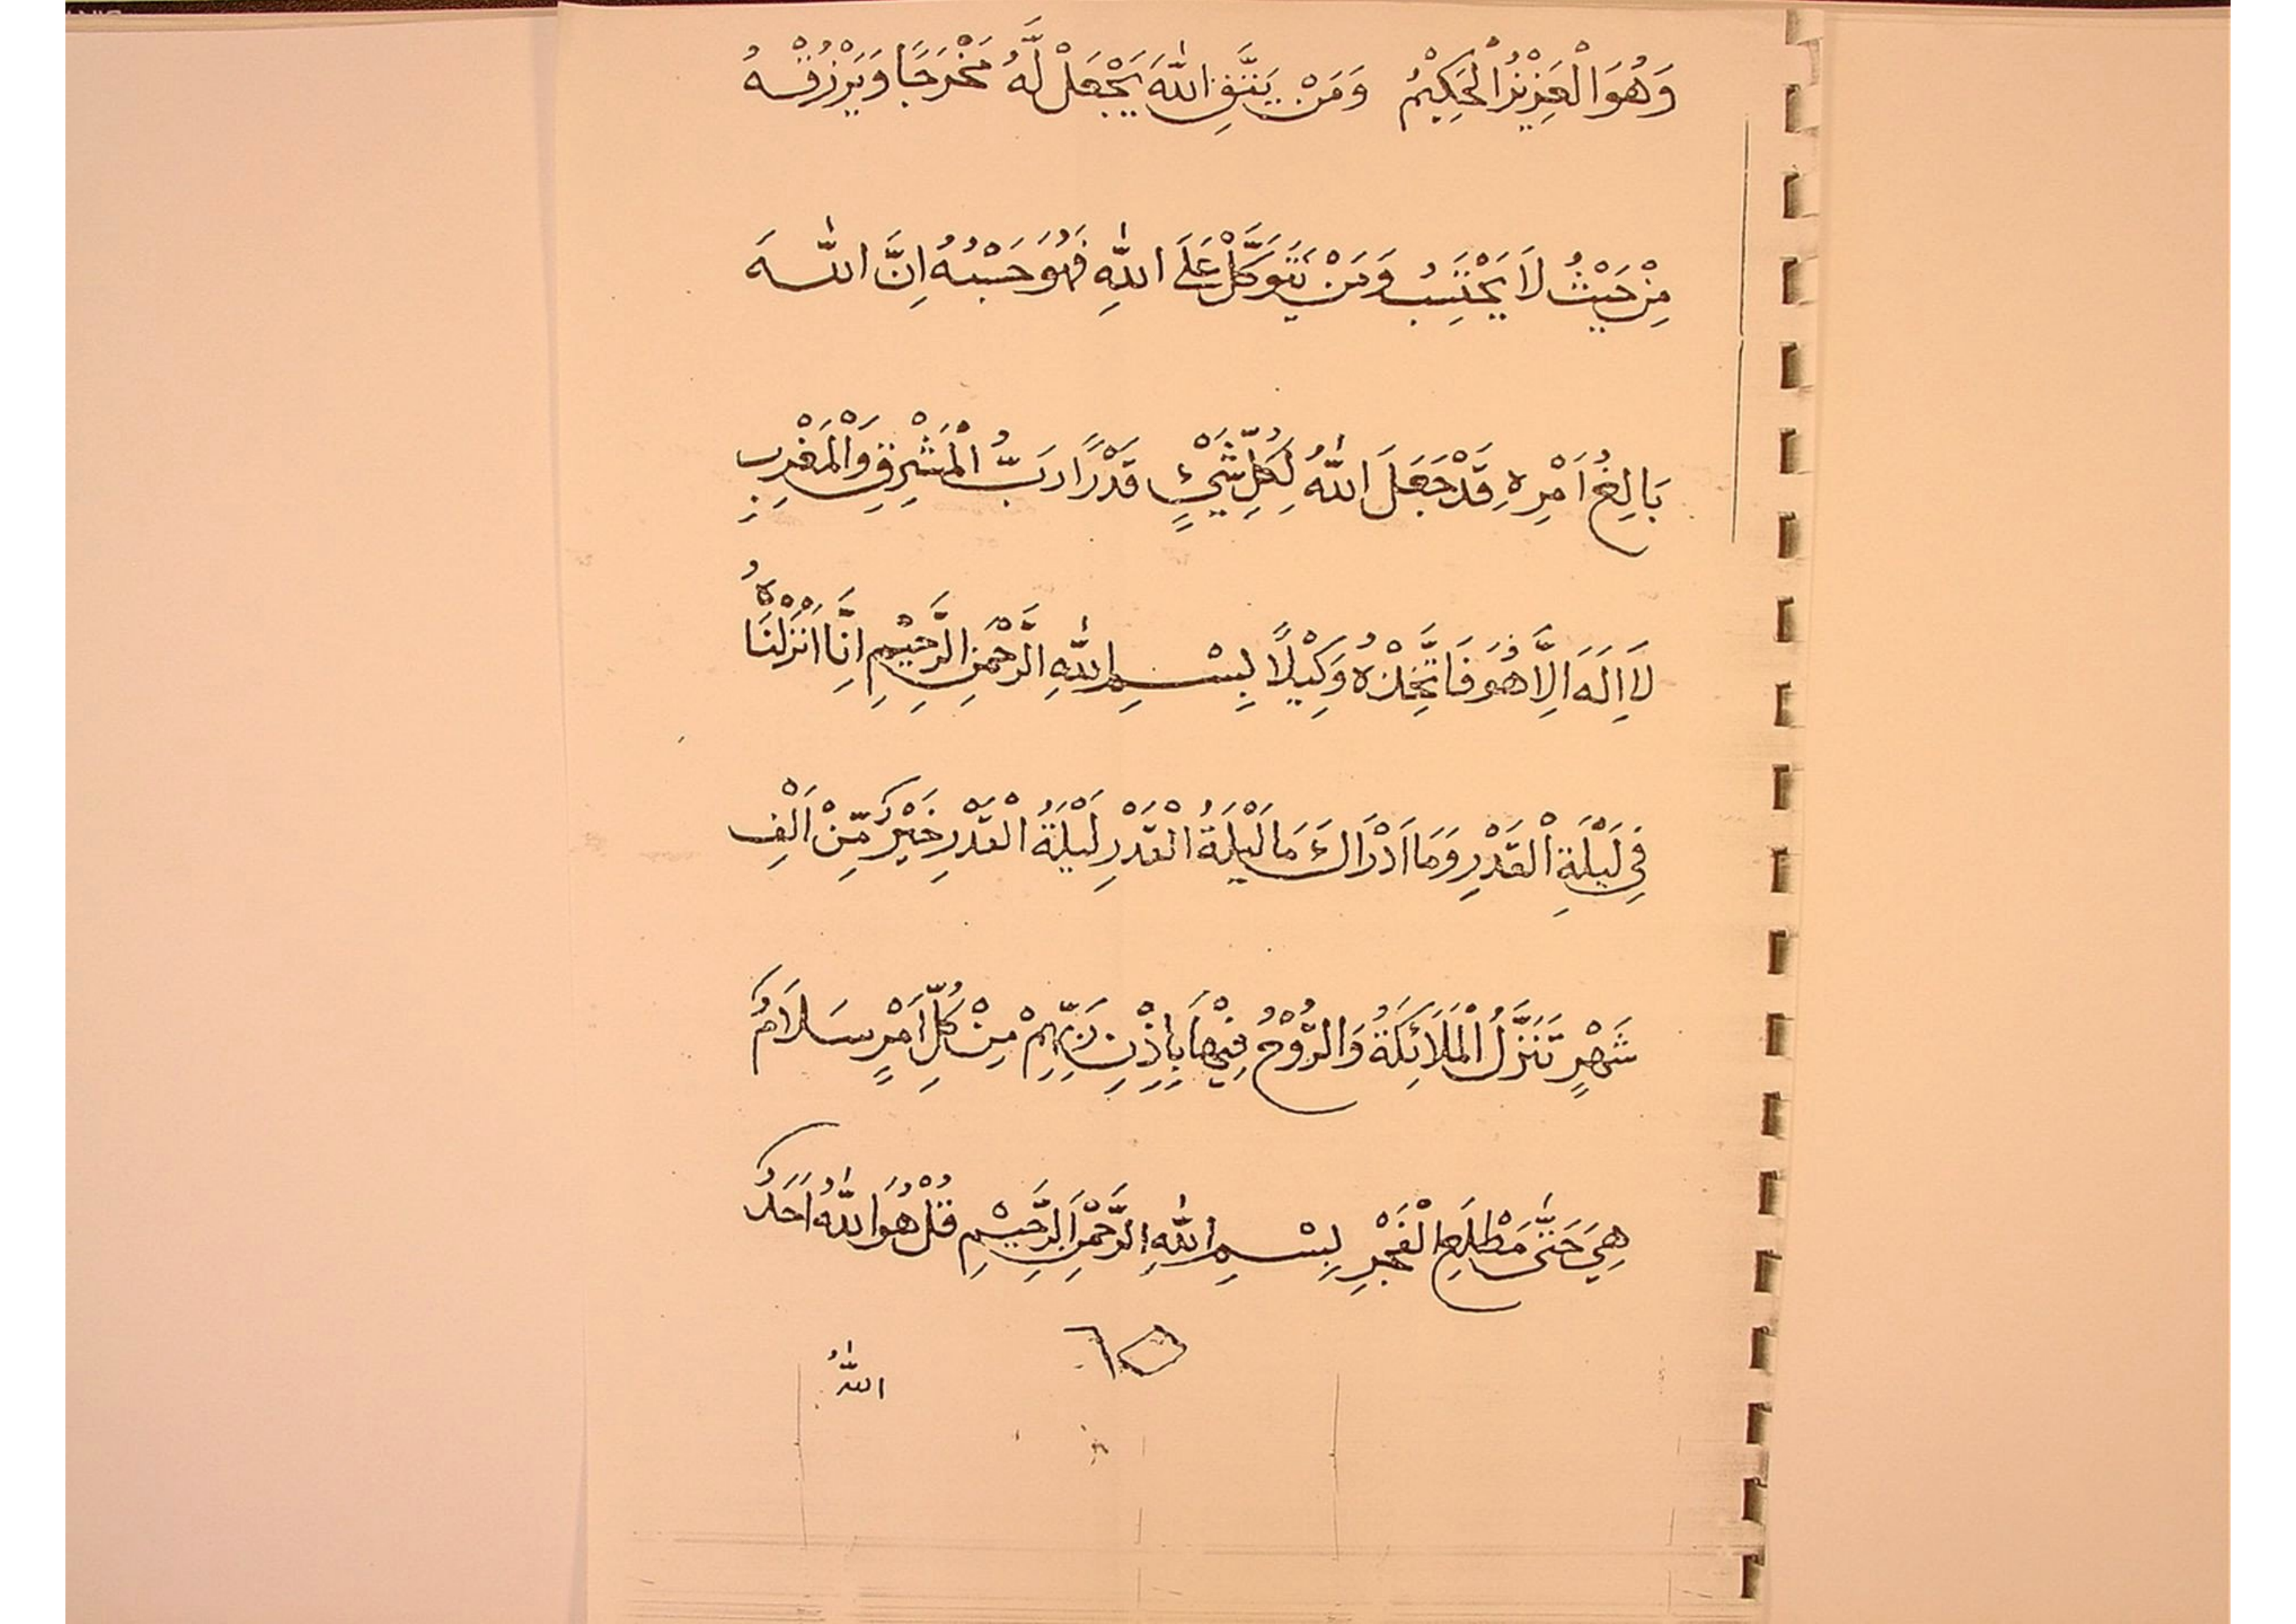 وَهُوَ الْعَزِيْزُ الْحَكِيْمُ وَمَنْ يَتَّقِ اللّٰهَ يَجْعَلْ لَّهُ مَخْرَجًا وَيَرْزُقْهُ
مِنْ حَيْثُ لَا يَحْتَسِبُ وَمَنْ يَتَوَكَّلْ عَلَى اللّٰهِ فَهُوَ حَسْبُهُ اِنَّ اللّٰهَ
بَالِغُ اَمْرِهِ قَدْ جَعَلَ اللّٰهُ لِكُلِّ شَيْءٍ قَدْرًا رَبُّ الْمَشْرِقِ وَالْمَغْرِبِ
لَا اِلَهَ اِلَّا هُوَ فَاتَّخِذْهُ وَكِيْلًا بِسْمِ اللّٰهِ الرَّحْمٰنِ الرَّحِيْمِ اِنَّا اَنْزَلْنَاهُ
فِي لَيْلَةِ الْقَدْرِ وَمَا اَدْرَاكَ مَا لَيْلَةُ الْقَدْرِ لَيْلَةُ الْقَدْرِ خَيْرٌ مِّنْ اَلْفِ
شَهْرٍ تَنَزَّلُ الْمَلَائِكَةُ وَالرُّوْحُ فِيْهَا بِاِذْنِ رَبِّهِمْ مِنْ كُلِّ اَمْرٍ سَلَامٌ
هِيَ حَتّٰى مَطْلَعِ الْفَجْرِ بِسْمِ اللّٰهِ الرَّحْمٰنِ الرَّحِيْمِ قُلْ هُوَ اللّٰهُ اَحَدٌ
٦٥
اللّٰهُ